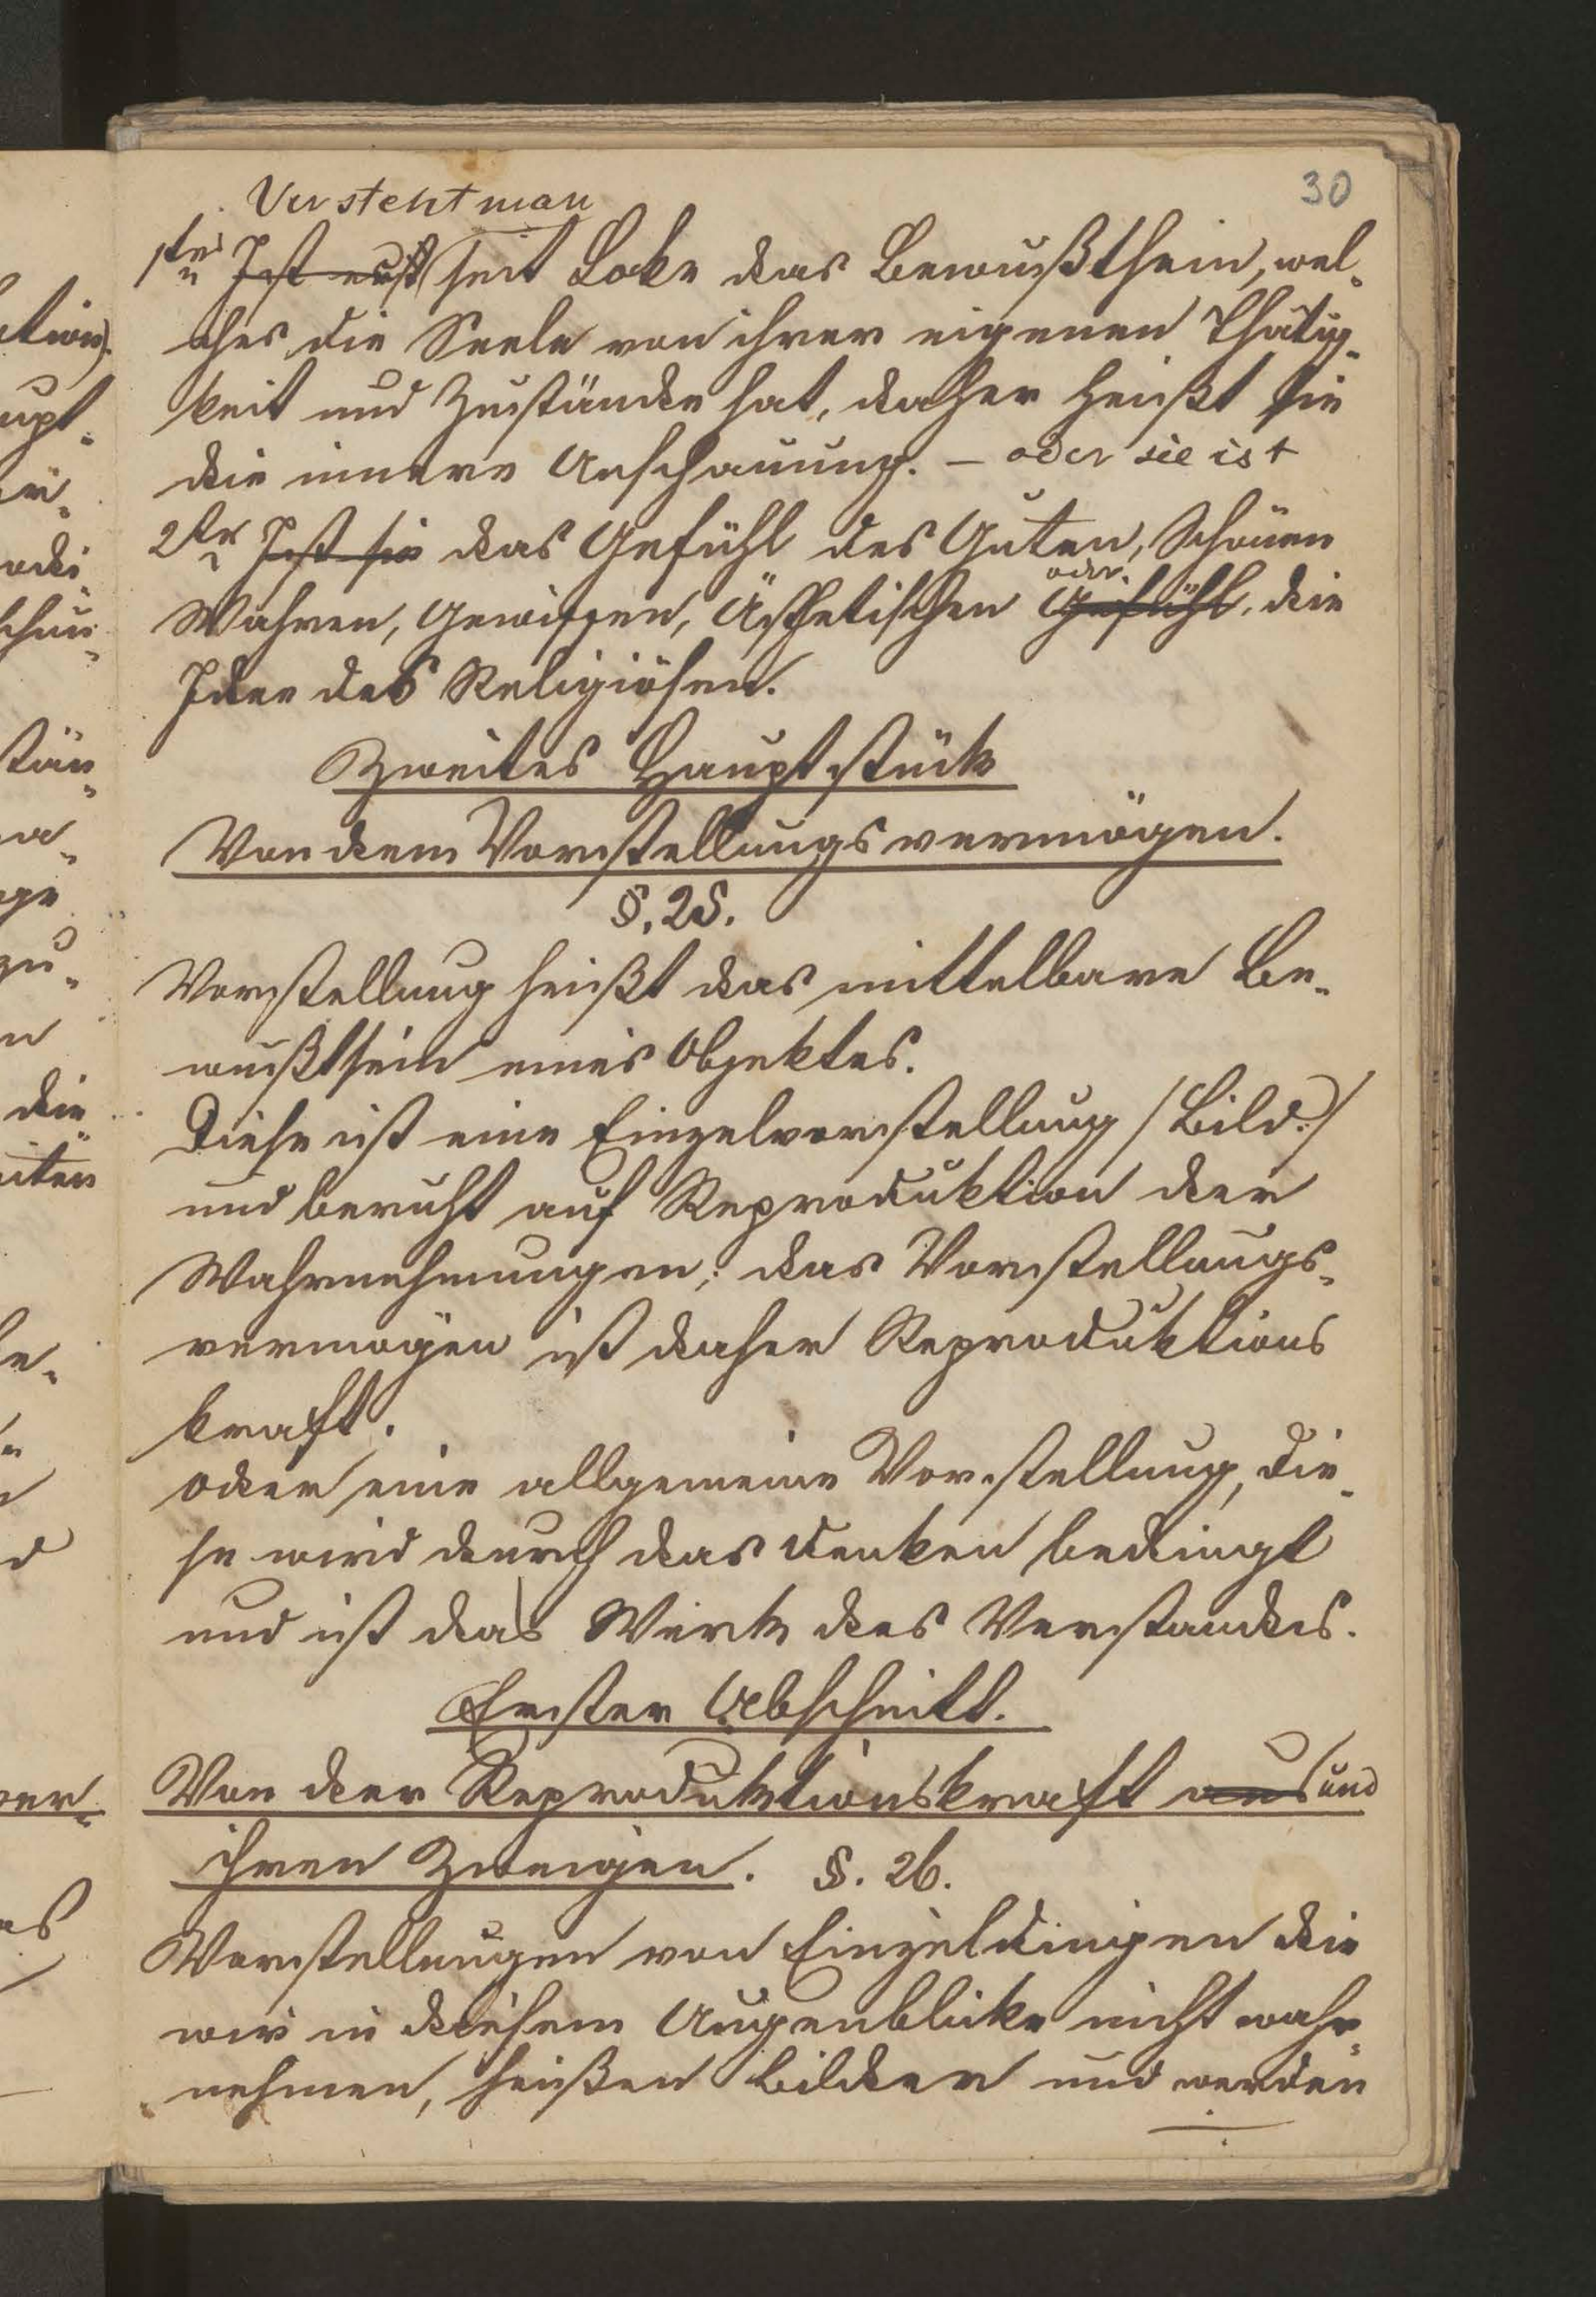 30
Versteht man
1tens Ist erst seit Loke das Bewußtsein, wel-
ches die Seele von ihrer eigenen Thätig-
keit und Zustände hat, daher heißt sie
die innere Anschauung. – oder sie ist
2tens Ist sie das Gefühl des Guten, Schönen
oder
Wahren, Gewissen, Ästhetischen Gefühl, die
Idee des Religiösen.
Zweites Hauptstück
Von dem Vorstellungsvermögen.
§. 25.
Vorstellung heißt das mittelbare Be-
wußtsein eines Objektes.
Diese ist eine Einzelvorstellung /Bild:/
und beruht auf Reproduktion der
Wahrnehmungen; das Vorstellungs-
vermögen ist daher Reproduktions
kraft.
oder eine allgemeine Vorstellung, die-
se wird durch das Denken bedingt
und ist das Werk des Verstandes.
Erster Abschnitt.
Von der Reproduktionskraft aus und
ihren Zweigen. §. 26.
Vorstellungen von Einzeldingen die
wir in diesem Augenblicke nicht wahr-
nehmen, heißen Bilder und werden